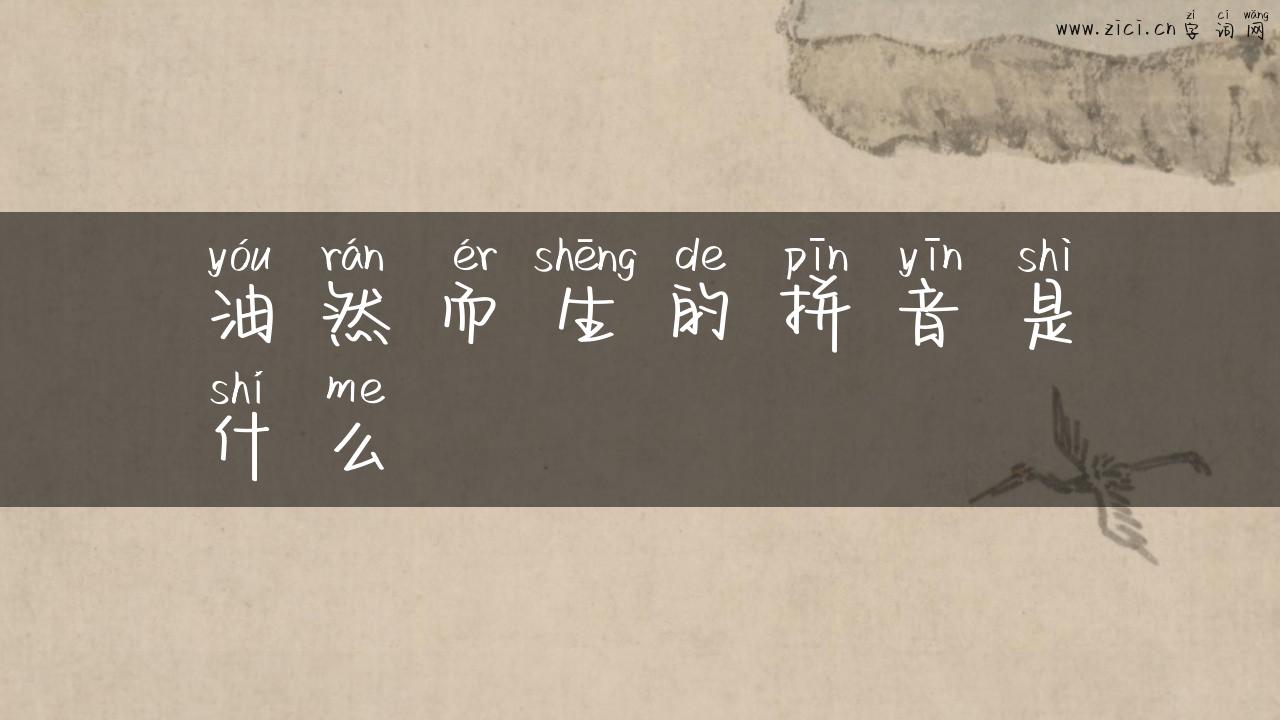 zì cí wǎng
www.zici.cn 字词网
yóu rán ér shēng de pīn yīn shì
油然而生的拼音是
shí me
什么